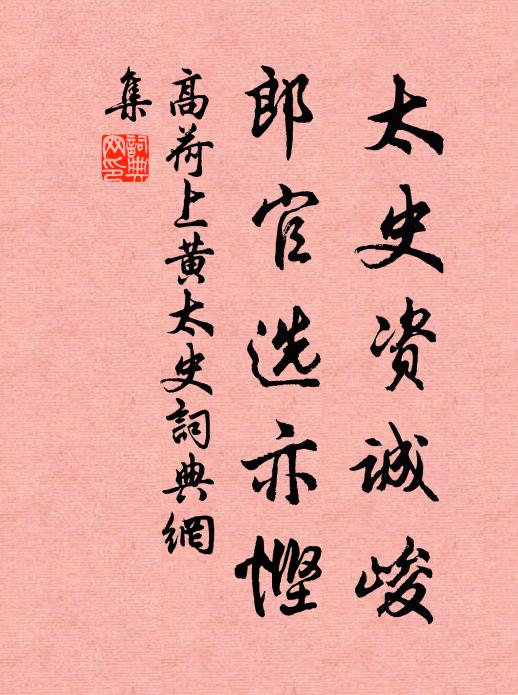 太史资诚峻
郎官选亦悭
高荷上黄太史詞典網
集
詞典
网印